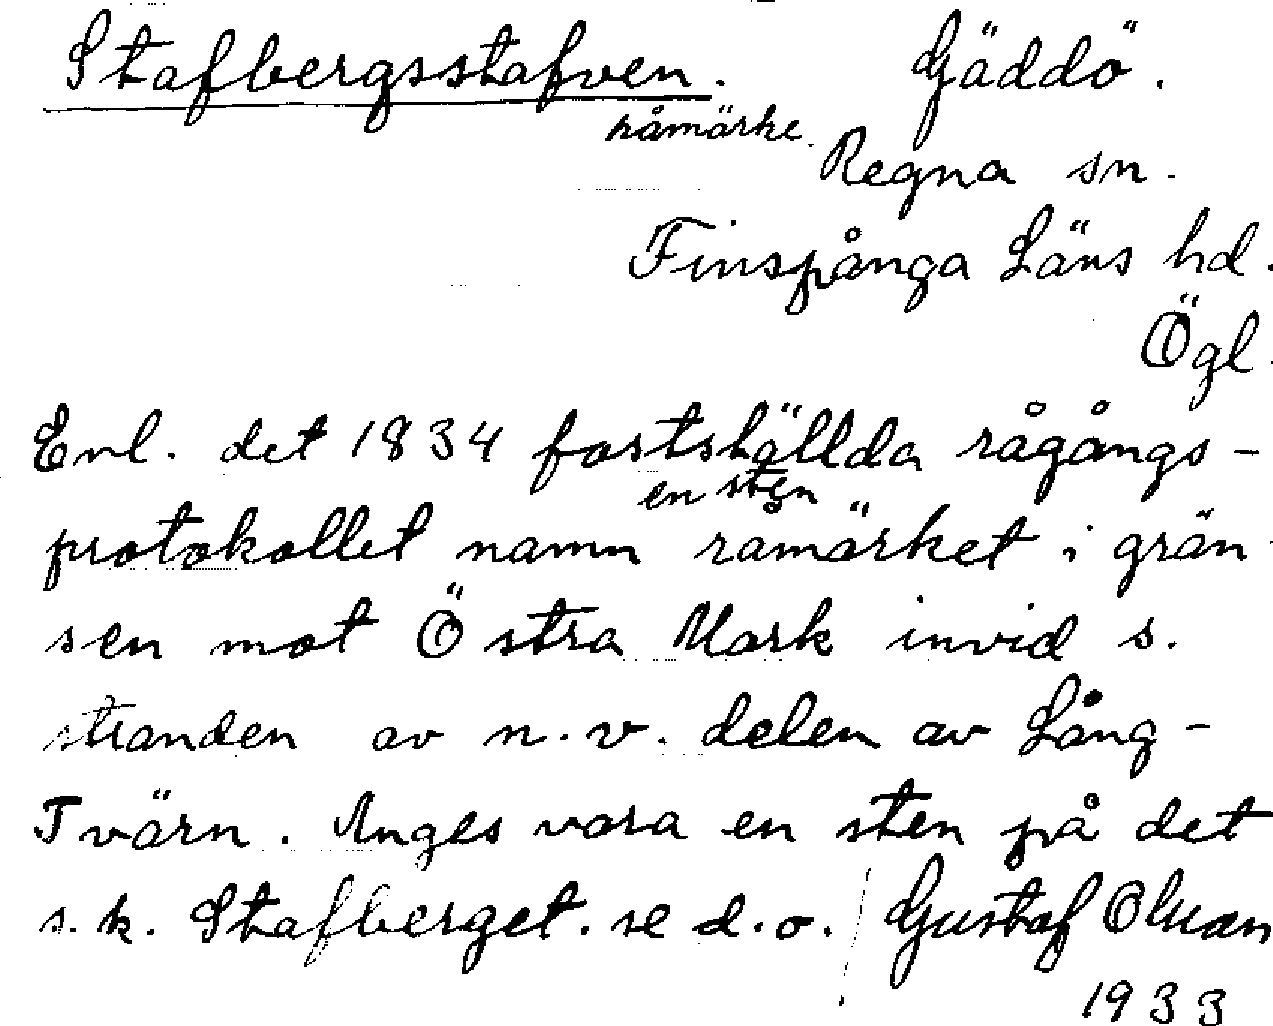 Stafbergsstafven. Gäddö.
råmärke.
Regna sn.
Finspånga Läns hd.
Ögl.
Enl. det 1834 fastställda rågångs-
en sten
protokollet namn råmärket i grän
sen mot Östra Mark invid s.
stranden av n.v. delen av Lång-
Tvärn. Anges vara en sten på det
s.k. Stafberget. se d.o. Gustaf Olsson
1933